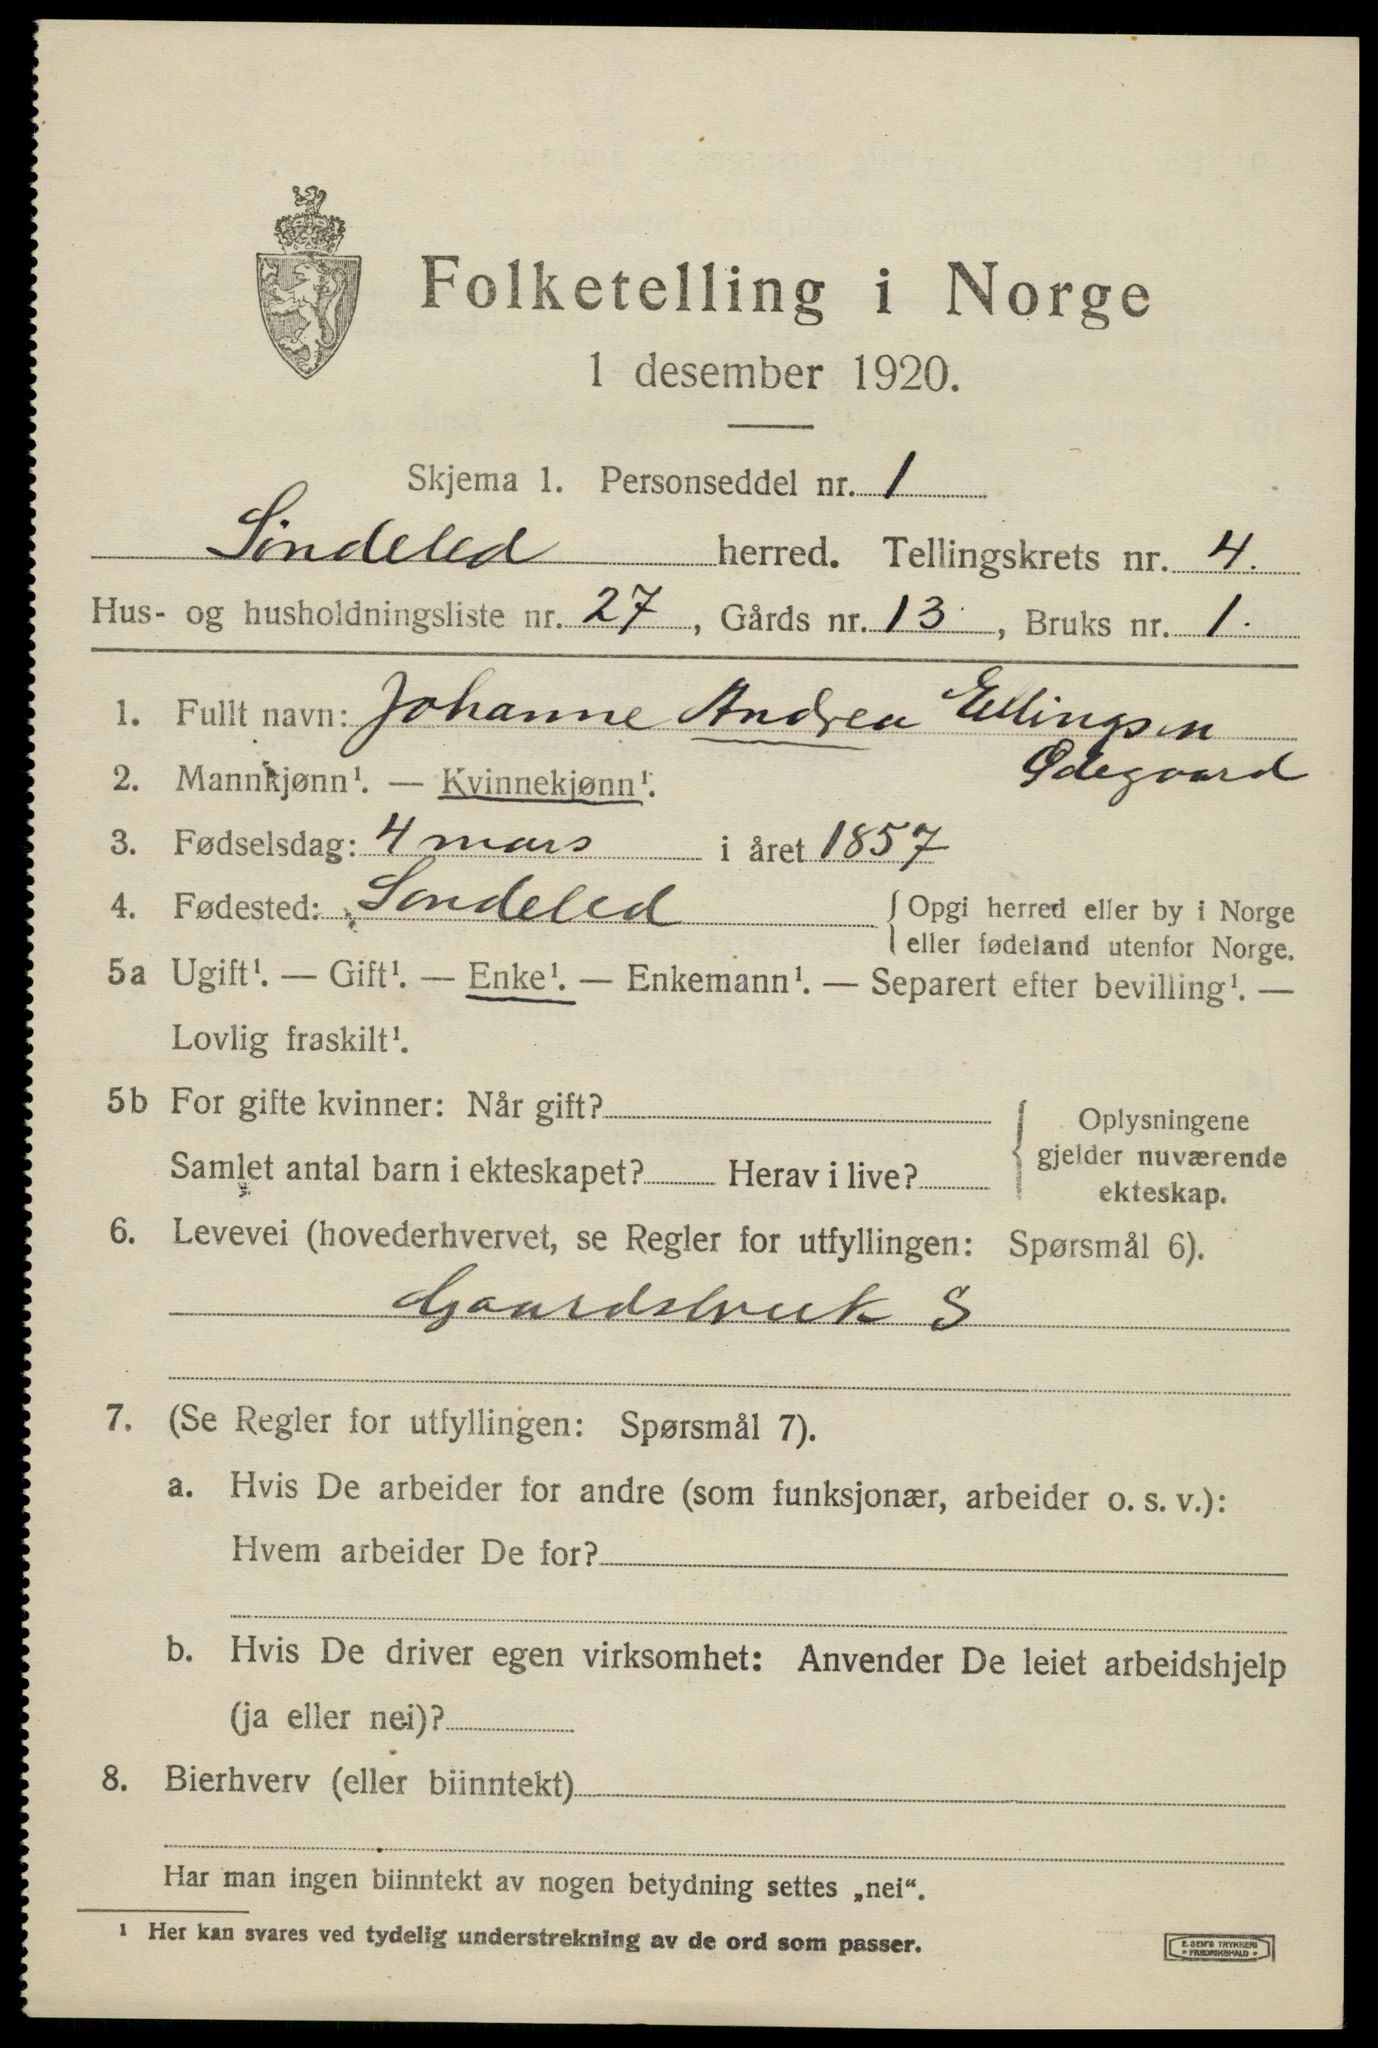 Folketelling i Norge
1 desember 1920.
Skjema 1. Personseddel nr. 1
Söndeled herred. Tellingskrets nr. 4.
Hus- og husholdningsliste nr. 27, Gårds nr. 13, Bruks nr. 1.
1. Fullt navn: Johanne Andrea Ellingsen
Ødegaard
2. Mannkjønn¹. — Kvinnekjønn¹.
3. Fødselsdag: 4 mars i året 1857
4. Fødested: Söndeled { Opgi herred eller by i Norge
eller fødeland utenfor Norge.
5a Ugift¹. — Gift¹. — Enke¹. — Enkemann¹. — Separert efter bevilling¹. —
Lovlig fraskilt¹.
5b For gifte kvinner: Når gift?
Samlet antal barn i ekteskapet? Herav i live?
Oplysningene
gjelder nuværende
ekteskap.
6. Levevei (hovederhvervet, se Regler for utfyllingen: Spørsmål 6).
Gaardsbruk S
7. (Se Regler for utfyllingen: Spørsmål 7).
a. Hvis De arbeider for andre (som funksjonær, arbeider o. s. v.):
Hvem arbeider De for?
b. Hvis De driver egen virksomhet: Anvender De leiet arbeidshjelp
(ja eller nei)?
8. Bierhverv (eller biinntekt)
Har man ingen biinntekt av nogen betydning settes „nei“.
¹ Her kan svares ved tydelig understrekning av de ord som passer.
E. SEM'S TRYKKERI
• FREDRIKSHALD •